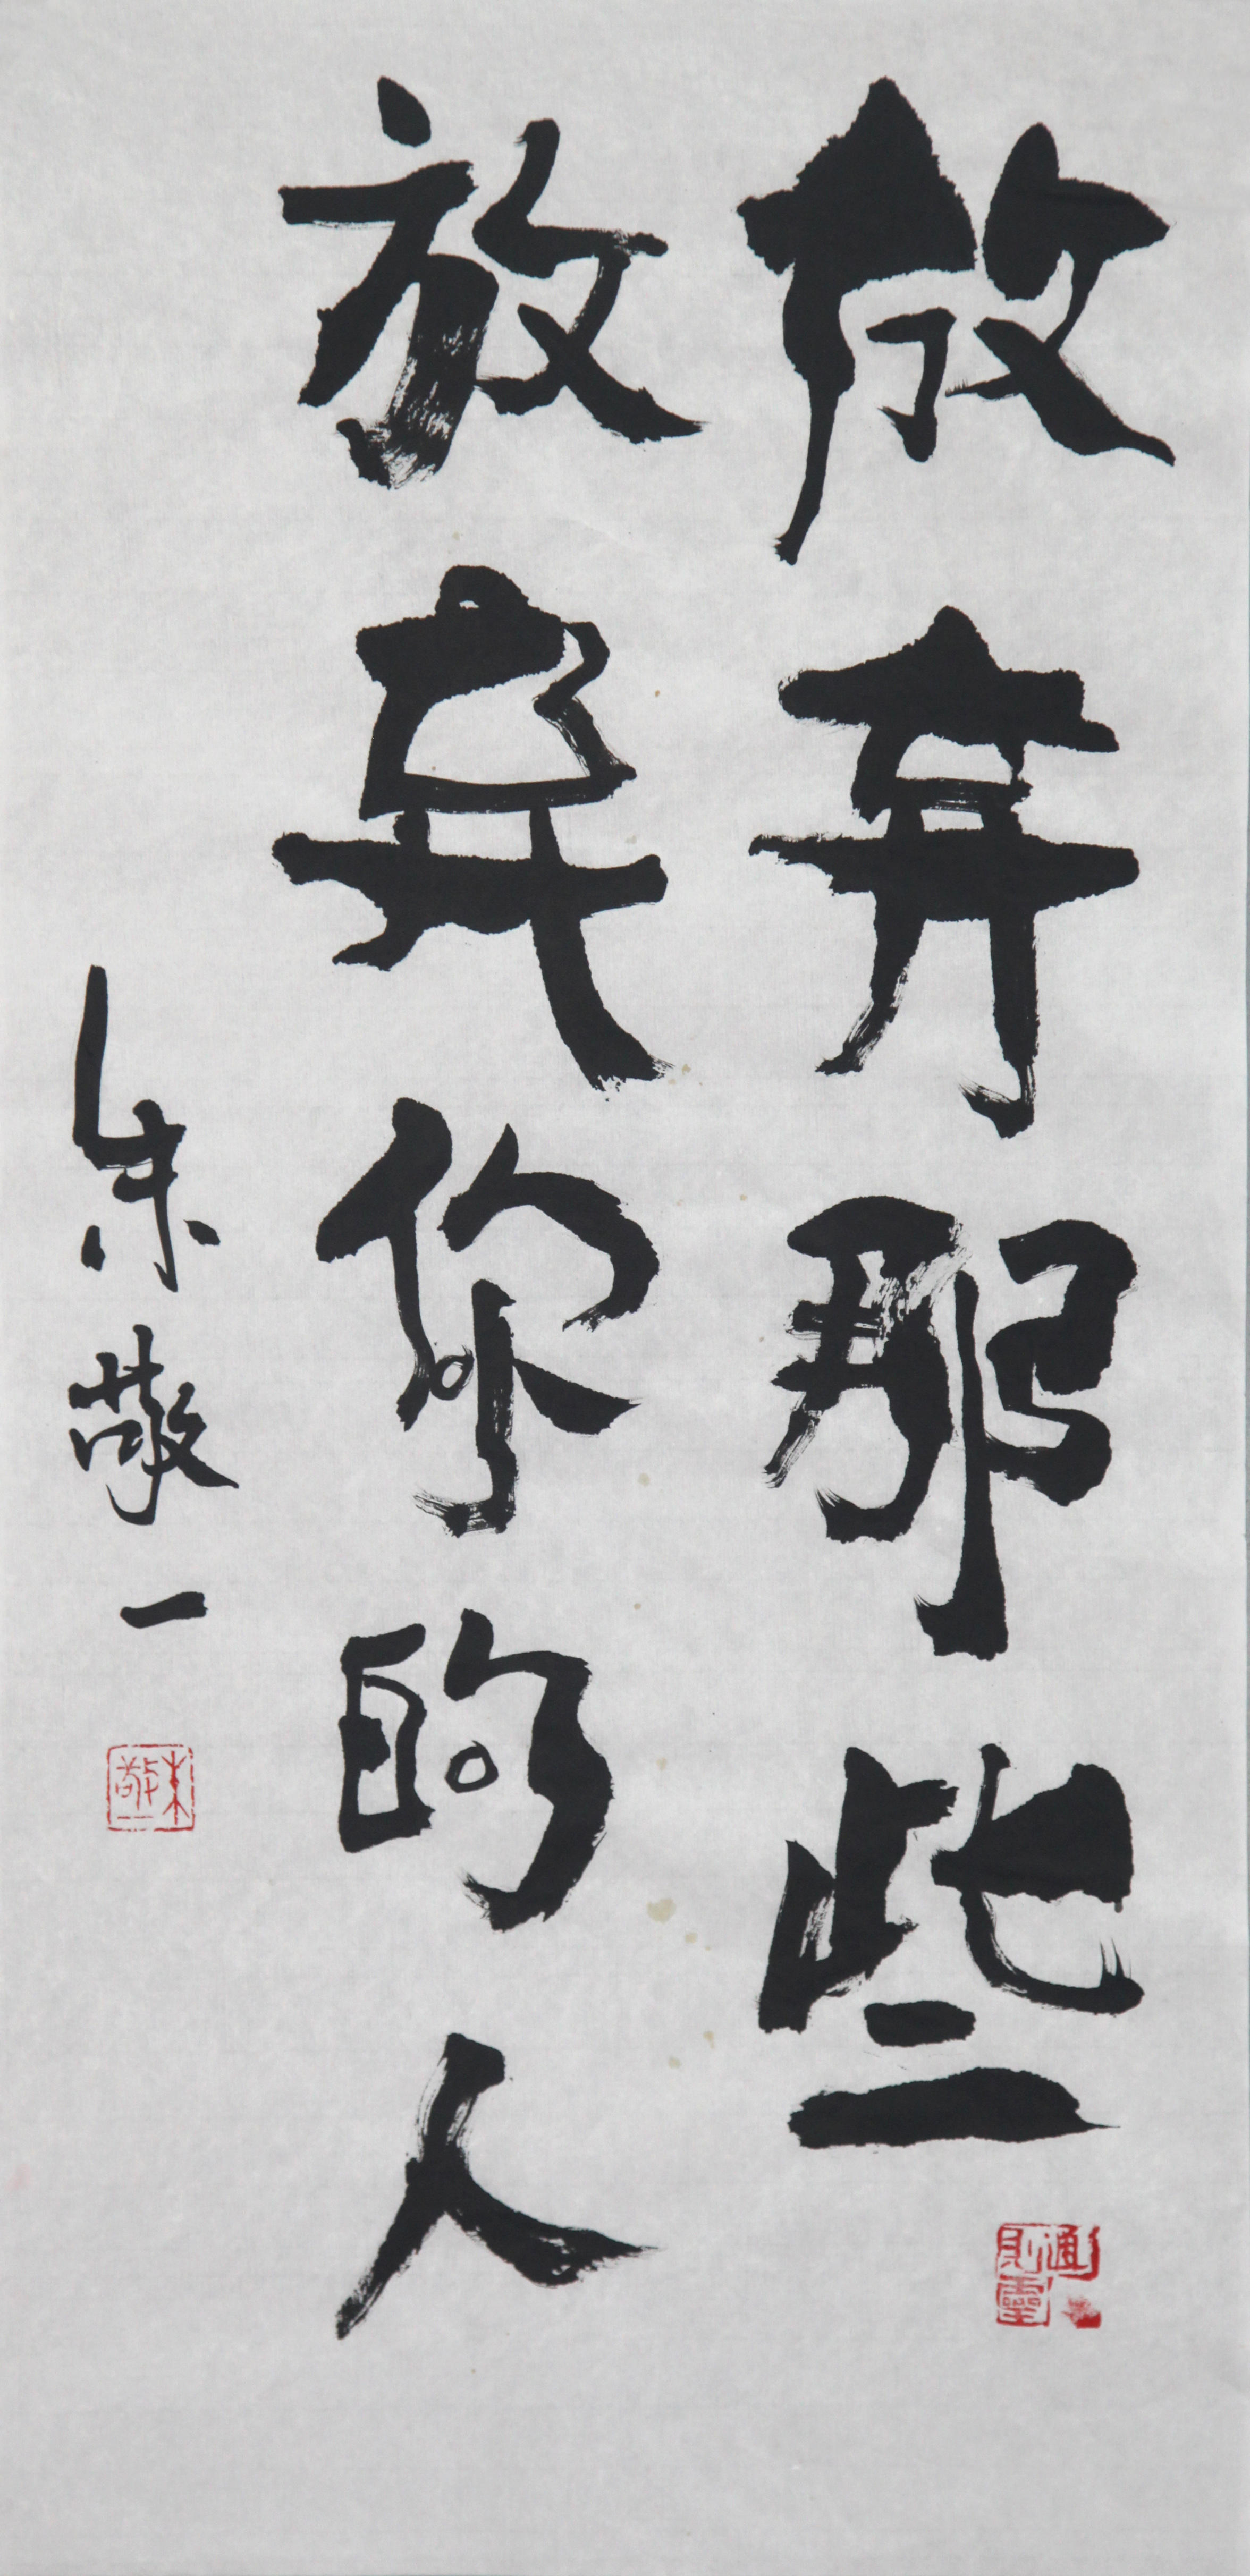 放弃那些
放弃你的人
朱敬一
朱敬一
通则灵